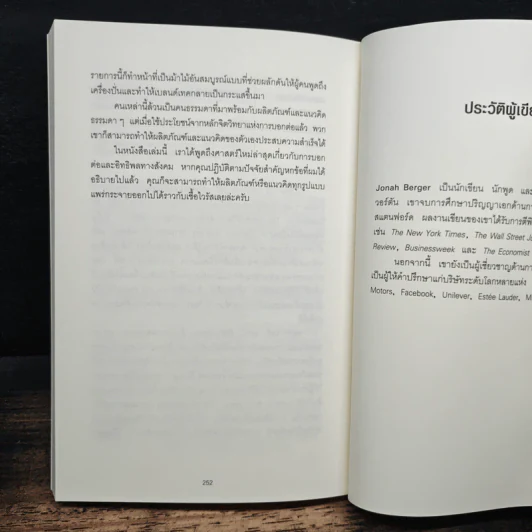 รายการนี้ก็ทำหน้าที่เป็นม้าไม้อันสมบูรณ์แบบที่ช่วยผลักดันให้ผู้คนพูดถึง
เครื่องปั่นและทำให้เบลนด์เทคกลายเป็นกระแสขึ้นมา
คนเหล่านี้ล้วนเป็นคนธรรมดาที่มาพร้อมกับผลิตภัณฑ์และแนวคิด
ธรรมดา ๆ แต่เมื่อใช้ประโยชน์จากหลักจิตวิทยาแห่งการบอกต่อแล้ว พวก
เขาก็สามารถทำให้ผลิตภัณฑ์และแนวคิดของตัวเองประสบความสำเร็จได้
ในหนังสือเล่มนี้ เราได้พูดถึงศาสตร์ใหม่ล่าสุดเกี่ยวกับการบอก
ต่อและอิทธิพลทางสังคม หากคุณปฏิบัติตามปัจจัยสำคัญหกข้อที่ผมได้
อธิบายไปแล้ว คุณก็จะสามารถทำให้ผลิตภัณฑ์หรือแนวคิดทุกรูปแบบ
แพร่กระจายออกไปได้ราวกับเชื้อไวรัสเลยล่ะครับ
252
ประวัติผู้เขีย
Jonah Berger เป็นนักเขียน นักพูด และ
วอร์ตัน เขาจบการศึกษาปริญญาเอกด้านกา
สแตนฟอร์ด ผลงานเขียนของเขาได้รับการตีพิ
เช่น The New York Times, The Wall Street J
Review, Businessweek และ The Economist
นอกจากนี้ เขายังเป็นผู้เชี่ยวชาญด้านกา
เป็นผู้ให้คำปรึกษาแก่บริษัทระดับโลกหลายแห่ง
Motors, Facebook, Unilever, Estée Lauder, M